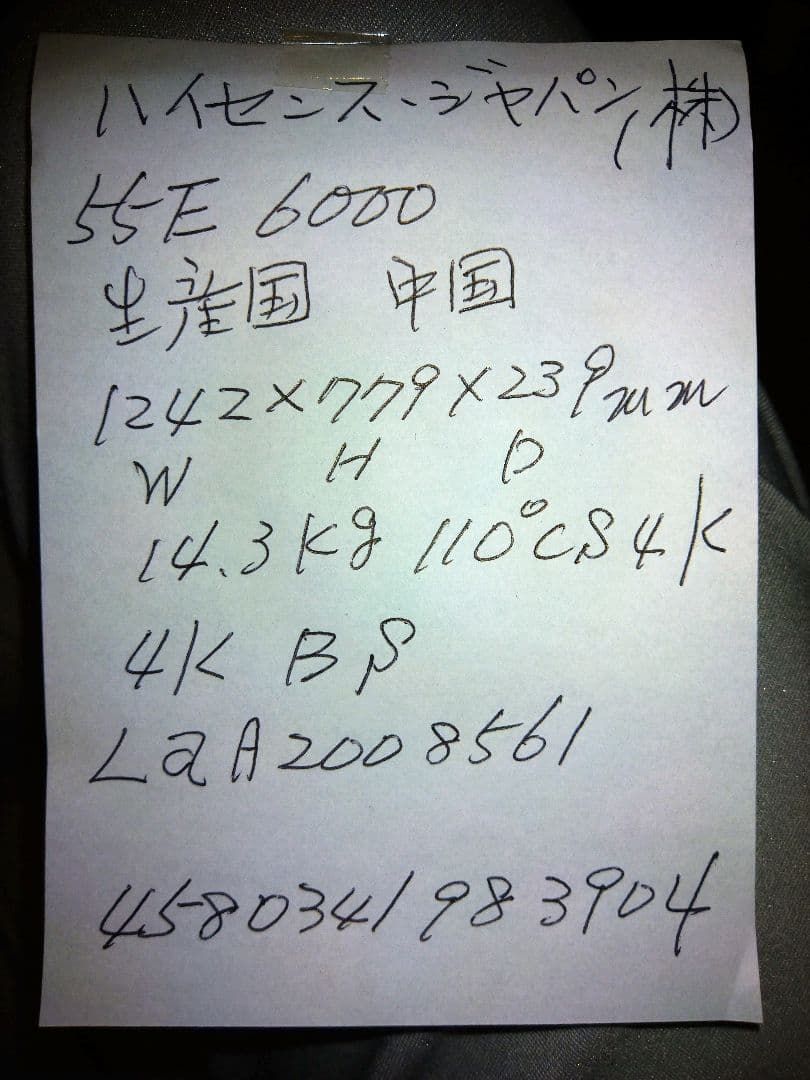 ハイセンス・ジャパン(株)
55E 6000
生産国 中国
1242×779×239mm
W H D
14.3kg 110°CS4K
4K BS
LaA2008561
4580341983904